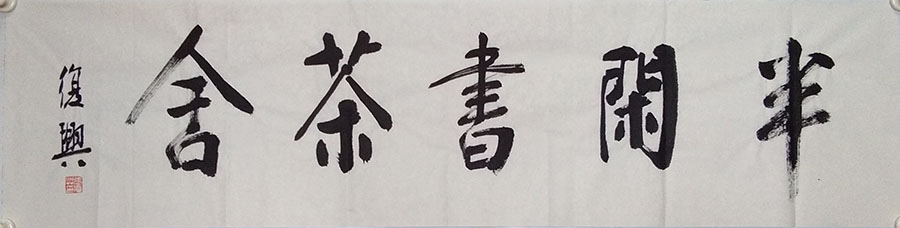 半閑書茶舍
復興